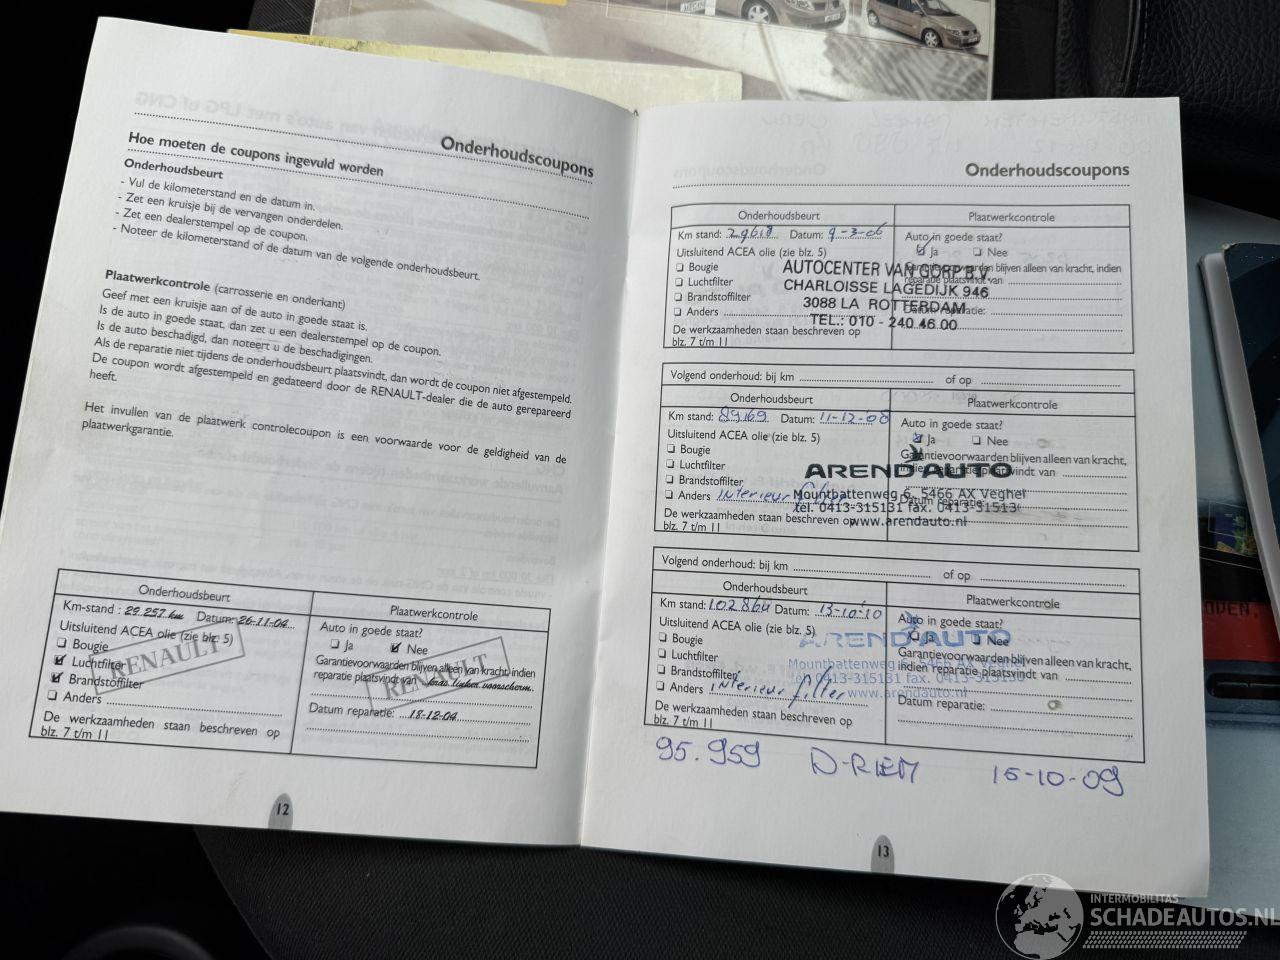 Onderhoudscoupons
Hoe moeten de coupons ingevuld worden
Onderhoudsbeurt
- Vul de kilometerstand en de datum in.
- Zet een kruisje bij de vervangen onderdelen.
- Zet een dealerstempel op de coupon.
- Noteer de kilometerstand of de datum van de volgende onderhoudsbeurt.
Plaatwerkcontrole (carrosserie en onderkant)
Geef met een kruisje aan of de auto in goede staat is.
Is de auto in goede staat, dan zet u een dealerstempel op de coupon.
Is de auto beschadigd, dan noteert u de beschadigingen.
Als de reparatie niet tijdens de onderhoudsbeurt plaatsvindt, dan wordt de coupon niet afgestempeld.
De coupon wordt afgestempeld en gedateerd door de RENAULT-dealer die de auto gerepareerd
heeft.
Het invullen van de plaatwerk controlecoupon is een voorwaarde voor de geldigheid van de
plaatwerkgarantie.
Onderhoudsbeurt
Km-stand : 29.257 km Datum: 26-11-04
Uitsluitend ACEA olie (zie blz. 5)
Bougie
Luchtfilter
Brandstoffilter
Anders
De werkzaamheden staan beschreven op
blz. 7 t/m 11
RENAULT
Plaatwerkcontrole
Auto in goede staat?
Ja Nee
Garantievoorwaarden blijven alleen van kracht, indien
reparatie plaatsvindt van kras linker voorscherm.
Datum reparatie: 18-12-04
RENAULT
12
Onderhoudscoupons
Onderhoudsbeurt
Km stand: 29618 Datum: 9-3-06
Uitsluitend ACEA olie (zie blz. 5)
Bougie
Luchtfilter
Brandstoffilter
Anders
De werkzaamheden staan beschreven op
blz. 7 t/m 11
Plaatwerkcontrole
Auto in goede staat?
Ja Nee
Garantievoorwaarden blijven alleen van kracht, indien
reparatie plaatsvindt van
Datum reparatie:
AUTOCENTER VAN GORP B.V.
CHARLOISSE LAGEDIJK 946
3088 LA ROTTERDAM
TEL.: 010 - 240 46 00
Volgend onderhoud: bij km of op
Onderhoudsbeurt
Km stand: 89169 Datum: 11-12-08
Uitsluitend ACEA olie (zie blz. 5)
Bougie
Luchtfilter
Brandstoffilter
Anders Interieur filter
De werkzaamheden staan beschreven op
blz. 7 t/m 11
Plaatwerkcontrole
Auto in goede staat?
Ja Nee
Garantievoorwaarden blijven alleen van kracht,
indien reparatie plaatsvindt van
Datum reparatie:
AREND AUTO
Mountbattenweg 6, 5466 AX Veghel
tel. 0413-315131 fax. 0413-315136
www.arendauto.nl
Volgend onderhoud: bij km of op
Onderhoudsbeurt
Km stand: 102864 Datum: 13-10-10
Uitsluitend ACEA olie (zie blz. 5)
Bougie
Luchtfilter
Brandstoffilter
Anders Interieur filter
De werkzaamheden staan beschreven op
blz. 7 t/m 11
Plaatwerkcontrole
Auto in goede staat?
Ja Nee
Garantievoorwaarden blijven alleen van kracht,
indien reparatie plaatsvindt van
Datum reparatie:
AREND AUTO
Mountbattenweg 6, 5466 AX Veghel
tel. 0413-315131 fax. 0413-315136
www.arendauto.nl
95.959 D-RIEM 15-10-09
13
INTERMOBILITAS
SCHADEAUTOS.NL